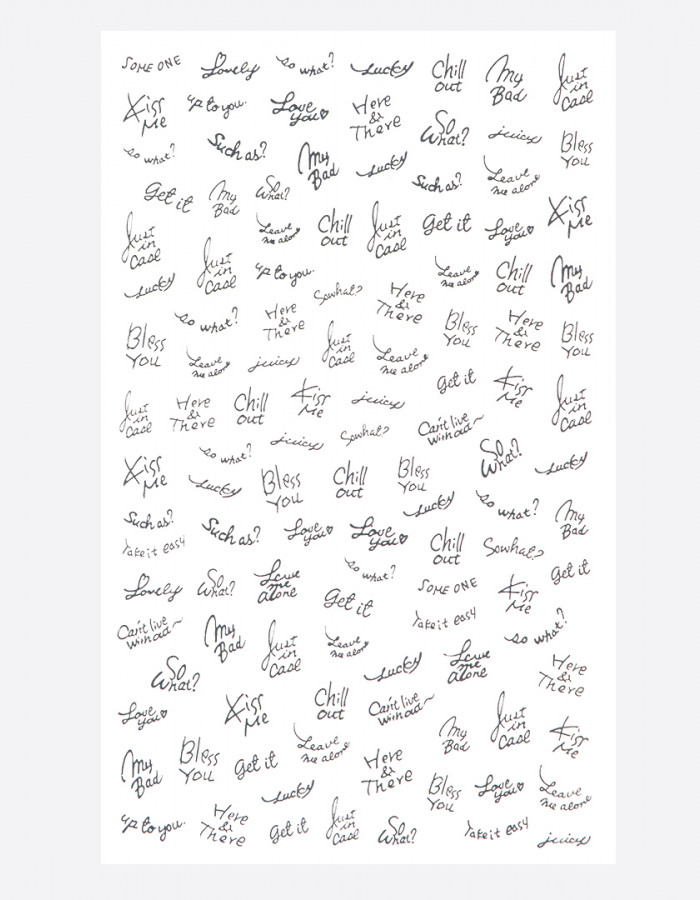 SOME ONE
Lovely
so what?
Lucky
Chill
out
My
Bad
Just
in
Case
Kiss
Me
up to you.
Love
you
Here
&
There
So
What?
juicy
Bless
You
so what?
Such as?
My
Bad
Lucky
Such as?
Leave
me alone
Get it
My
Bad
So
What?
Kiss
Me
Just
in
Case
Leave
me alone
Chill
out
Just
in
Case
Get it
Love
you
Lucky
Just
in
Case
up to you.
So what?
Here
&
There
Leave
me alone
Chill
out
My
Bad
Bless
You
so what?
Here
&
There
Just
in
Case
Bless
You
Here
&
There
Bless
You
Leave
me alone
juicy
Leave
me alone
Get it
Kiss
Me
Just
in
Case
Just
in
Case
Here
&
There
Chill
out
Kiss
Me
juicy
Can't live
without~
Kiss
Me
so what?
juicy
So what?
So
What?
Lucky
Lucky
Bless
You
Chill
out
Bless
You
Lucky
so what?
My
Bad
Such as?
Take it easy
Such as?
Love
you
Love
you
Chill
out
So what?
Get it
Lovely
So
What?
Leave
me
alone
so what?
Get it
SOME ONE
Kiss
Me
Can't live
without~
My
Bad
Just
in
Case
Leave
me alone
Take it easy
so what?
So
What?
Lucky
Leave
me
alone
Here
&
There
Love
you
Kiss
Me
Chill
out
Can't live
without~
My
Bad
Just
in
Case
Kiss
Me
My
Bad
Bless
You
Get it
Leave
me alone
Here
&
There
Lucky
Bless
You
Love
you
Leave
me alone
up to you.
Here
&
There
Get it
Just
in
Case
So
What?
Take it easy
juicy